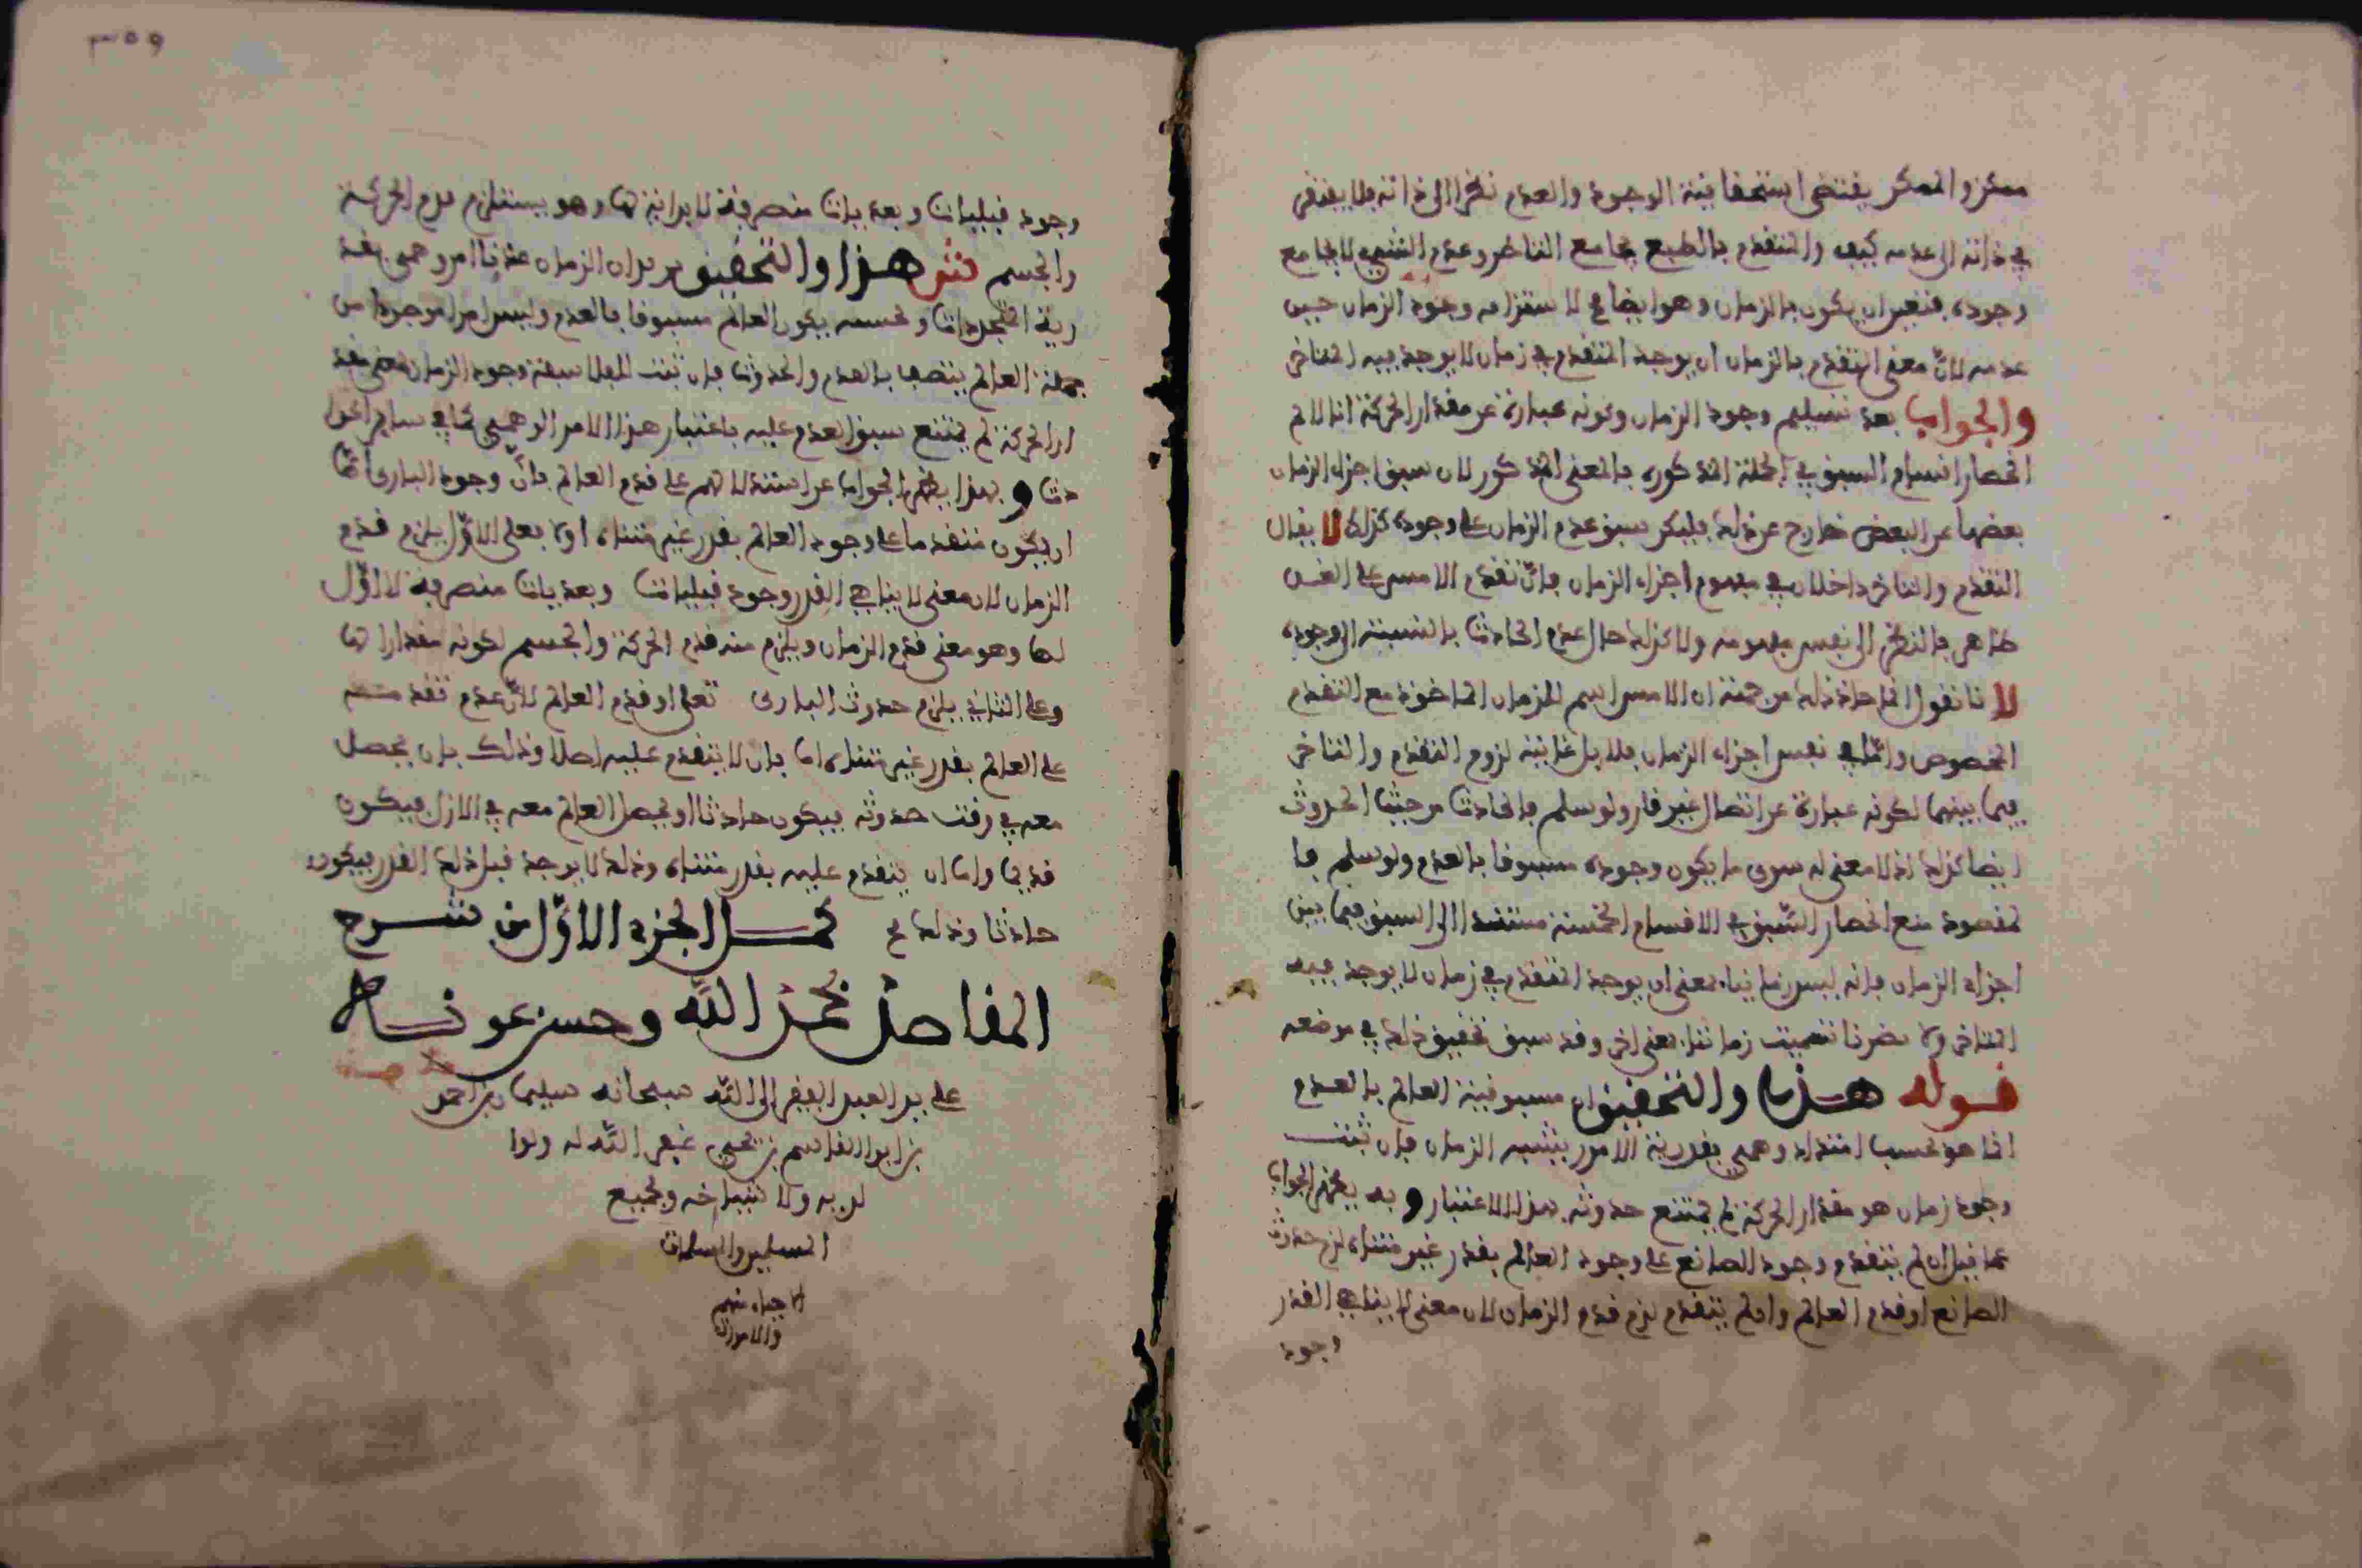 ممكن والممكن يقتضي استحقاقية الوجود والعدم نظرا الى ذاته فلا يفتقر
في ذاته الى عدمه كيف والمتقدم بالطبع يجامع المتاخر وعدم الشيء لا يجامع
وجوده فتعين ان يكون بالزمان وهو ايضا مح لاستلزامه وجود الزمان حين
عدمه لانّ معنى التقدم بالزمان ان يوجد المتقدم في زمان لا يوجد فيه المتاخر
والجواب بعد تسليم وجود الزمان وكونه عبارة عن مقدار الحركة انا لا نم
انحصار اقسام السبق في الخمسة المذكورة بالمعنى المذكور لان سبق اجزاء الزمان
بعضها عن البعض خارج عن ذلك فليكن سبق عدم الزمان على وجوده كذلك لا يقال
التقدم والتاخر داخلان في مفهوم اجزاء الزمان فانّ تقدم الامس على الغد
ظاهر بالنظر الى نفس مفهومه ولا كذلك حال عدم الحادث بالنسبة الى وجوده
لا نا نقول انما جاء ذلك من جهة ان الامس اسم للزمان الماخوذ مع التقدم
المخصوص وامّا في نفس اجزاء الزمان فلا بل غايته لزوم التقدم والتاخر
فيما بينهما لكونه عبارة عن اتصال غير قار ولو سلم فالحادث من حيث الحدوث
ايضا كذلك اذ لا معنى له سوى ما يكون وجوده مسبوقا بالعدم ولو سلم فا
لمقصود منع انحصار السّبق في الاقسام الخمسة مستندا الى السبق فيما بين
اجزاء الزمان فانه ليس زمانيا بمعنى ان يوجد المتقدم في زمان لا يوجد فيه
المتاخر ولا يضرنا تسميته زمانيا بمعنى اخر وقد سبق تحقيق ذلك في موضعه
قوله هذا والتحقيق ان مسبوقية العالم بالعدم
انما هو بحسب امتداد وهمي يقدر به الامور يشبه الزمان فان ثبت
وجود زمان هو مقدار الحركة لم يمتنع حدوثه بهذا الاعتبار وبه يظهر الجواب
عما قيل ان لم يتقدم وجود الصانع على وجود العالم بقدر غير متناه لزم حدوث
الصانع او قدم العالم وان تقدم لزم قدم الزمان لان معنى لا تناهي القدر
وجود
٣٥٩
وجود قبليات وبعديات متصرفة لا بداية لها وهو يستلزم قدم الحركة
والجسم ش هذا والتحقيق يريد ان الزمان عندنا امر وهمي يقد
ر به المتجددات وبحسبه يكون العالم مسبوقا بالعدم وليس امرا موجودا من
جملة العالم يتصف بالعدم والحدوث فان ثبت للفلاسفة وجود الزمان بمعنى مقد
ار الحركة لم يمتنع سبق العدم عليه باعتبار هذا الامر الوهمي كما في سائر الحوا
دث وبهذا يظهر الجواب عن استدلالهم على قدم العالم بانّ وجود البارئ امّا
ان يكون متقدما على وجود العالم بقدر غير متناه اولا فعلى الاوّل يلزم قدم
الزمان لان معنى لا تناهي القدر وجود قبليات وبعديات متصرفة لا اوّل
لها وهو معنى قدم الزمان ويلزم منه قدم الحركة والجسم لكونه مقدارا لها
وعلى الثاني يلزم حدوث الباري تعلى او قدم العالم لانّ عدم تقدمه
على العالم بقدر غير متناه اما بان لا يتقدم عليه اصلا وذلك بان يحصل
معه في وقت حدوثه فيكون حادثا او يحصل العالم معه في الازل فيكون
قديما واما ان يتقدم عليه بقدر متناه وذلك لا يوجد قبل ذلك القدر فيكون
حادثا وذلك مح كمل الجزء الاوّل من شرح
المقاصد بحمد الله وحسن عونه
على يد العبد الفقير الى اللّه سبحانه سليمان بن احمد
بن ابو القاسم بن يحيى غفر اللّه له ولوا
لديه ولاشياخه ولجميع
المسلمين والمسلمات
الاحياء منهم
والاموات